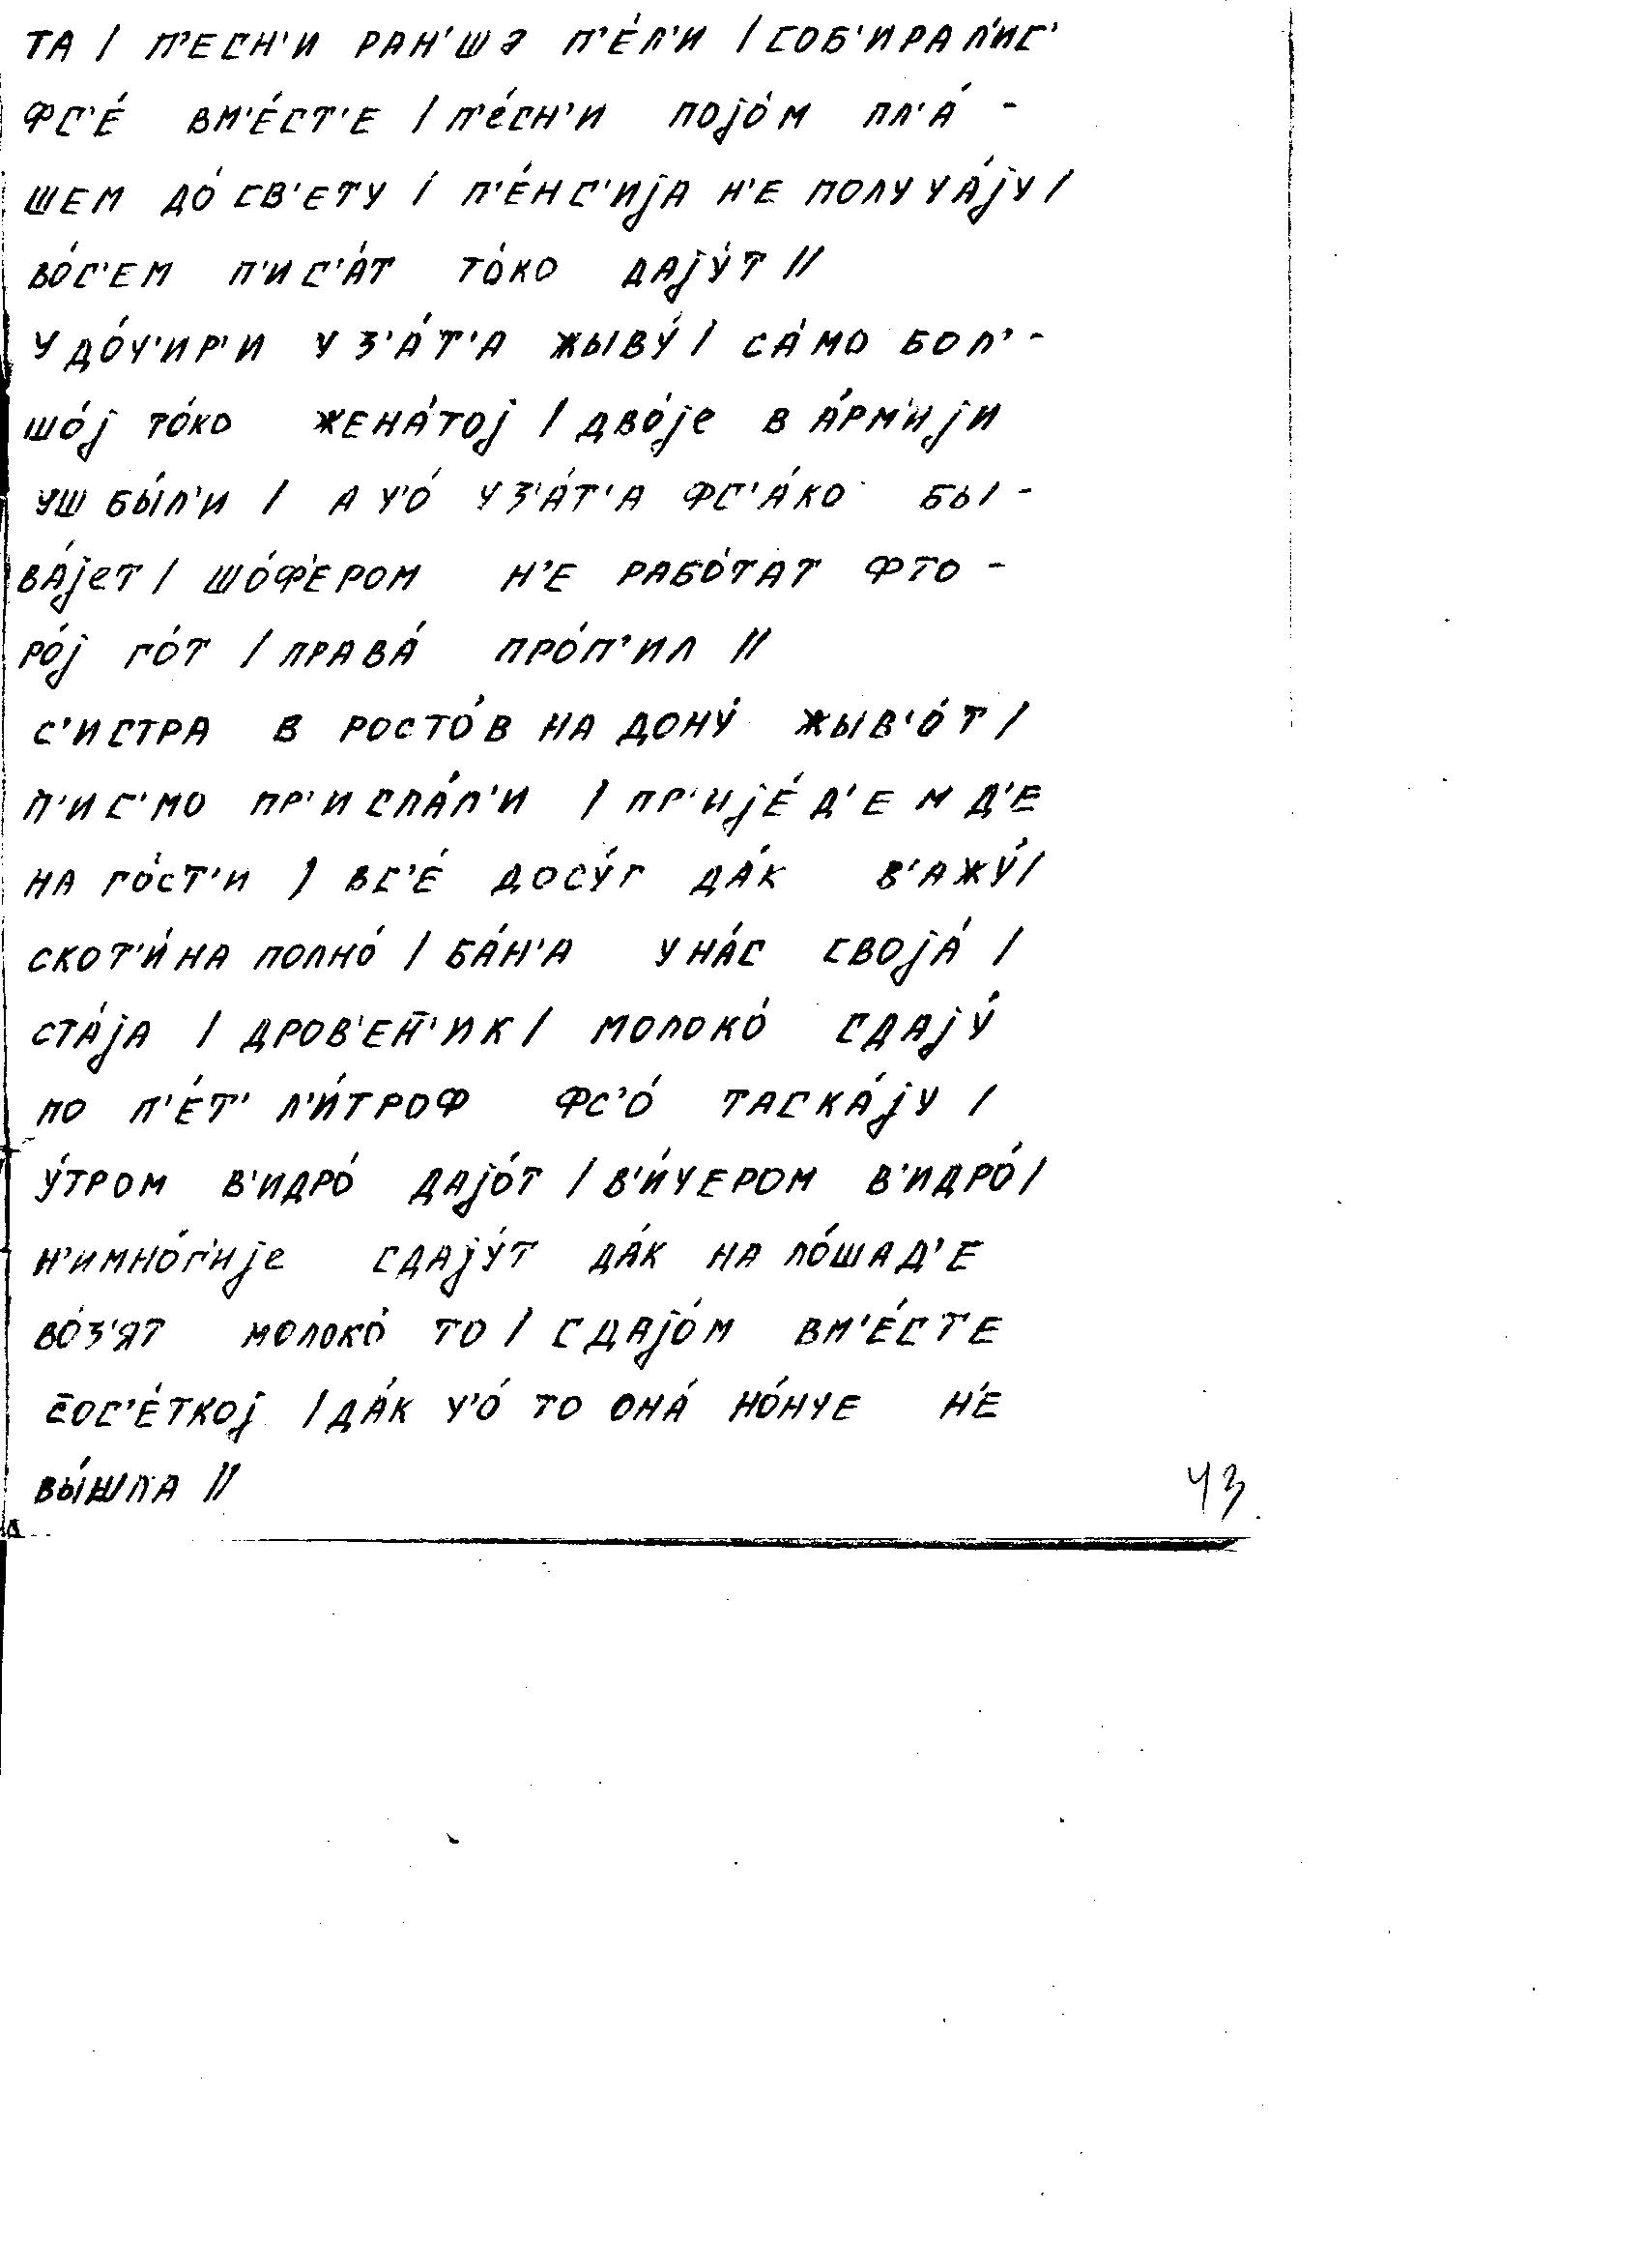 ТА / П'ЕСН'И РАН'ШЭ П'Е́Л'И / СОБ'ИРАЛ'ИС'
ФС'Е́ ВМ'Е́СТ'Е / П'е́СН'И ПОјО́М ПЛ'А́ -
ШЕМ ДО́ СВ'ЕТУ / П'Е́НС'ИјА Н'Е ПОЛУЧА́јУ /
ВО́С'ЕМ П'ИС'А́Т ТО́КО ДАјУ́Т //
У ДО́Ч'ИР'И У З'А́Т'А ЖЫВУ́ / СА́МО БОЛ' -
ШО́ј ТО́КО ЖЕНА́ТОј / ДВО́је В А́РМ'ИјИ
УШ БЫ́Л'И / А Ч'О́ У З'А́Т'А ФС'А́КО БЫ -
ВА́јеТ / ШО́Ф'ЕРОМ Н'Е РАБО́ТАТ ФТО -
РО́ј ГО́Т / ПРАВА́ ПРО́П'ИЛ //
С'ИСТРА В РОСТО́В НА ДОНУ́ ЖЫВ'О́Т /
П'ИС'МО ПР'ИСЛА́Л'И / ПР'ИјЕ́Д'ЕМ Д'Е
НА ГО́СТ'И / ВС'Е́ ДОСУ́Г ДА́К В'АЖУ́ /
СКОТ'И́НА ПОЛНО́ / БА́Н'А У НА́С СВОјА́ /
СТА́јА / ДРОВ'ЕН̄'ИК / МОЛОКО́ СДАјУ́
ПО П'Е́Т' Л'И́ТРОФ ФС'О́ ТАСКА́јУ /
У́ТРОМ В'ИДРО́ ДАјО́Т / В'И́ЧЕРОМ В'ИДРО́ /
Н'ИМНО́Г'Ије СДАјУ́Т ДА́К НА ЛО́ШАД'Е
ВО́З'ЯТ МОЛОКО́ ТО / СДАјО́М ВМ'Е́СТ'Е
С̄ОС'Е́ТКОј / ДА́К Ч'О́ ТО ОНА́ НО́НЧЕ Н'Е
ВЫ́ШЛА //
43